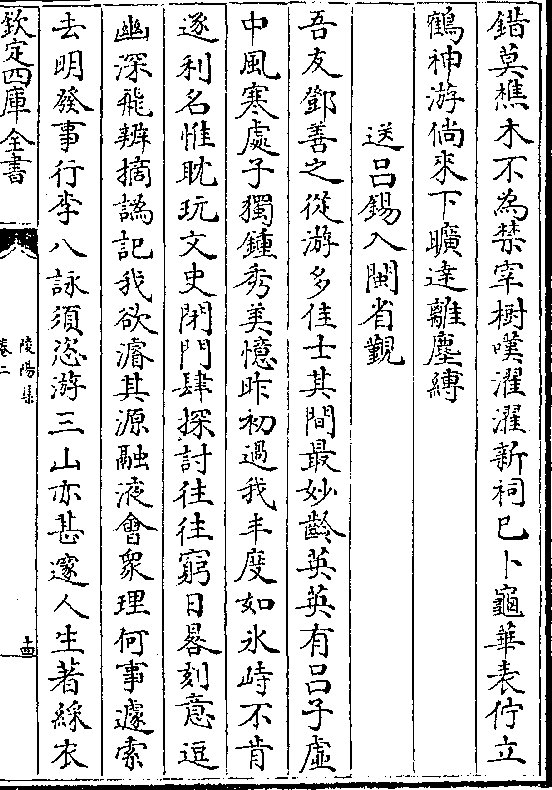 錯莫樵木不為禁宰樹嘆濯濯新祠巳卜龜華表佇立
鶴神游倘來下曠達離塵縛
送吕錫入閩省觀
吾友鄧善之從游多佳士其間最妙齡英英有吕子虚
中風寒處子獨鍾秀美憶昨初過我丰度如氷峙不肯
逐利名惟耽玩文史閉門肆探討往往窮日晷刻意逗
幽深飛辨摘譌記我欲濬其源融液會衆理何事遽索
去明發事行李八詠須恣游三山亦甚邃人生著綵衣
欽定四庫全書
陵陽集
卷二
十四